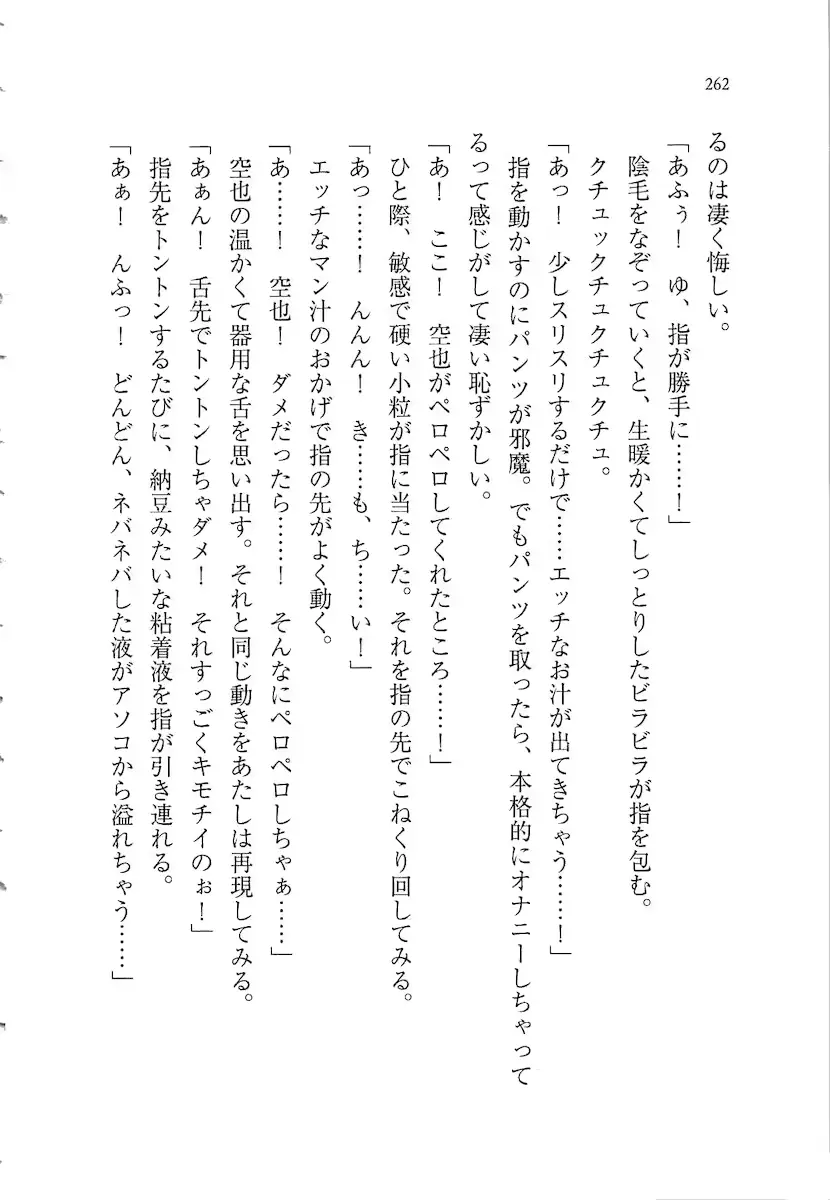 262
るのは凄く悔しい。
「あふぅ！　ゆ、指が勝手に……！」
陰毛をなぞっていくと、生暖かくてしっとりしたビラビラが指を包む。
クチュックチュクチュクチュ。
「あっ！　少しスリスリするだけで……エッチなお汁が出てきちゃう……！」
指を動かすのにパンツが邪魔。でもパンツを取ったら、本格的にオナニーしちゃって
るって感じがして凄い恥ずかしい。
「あ！　ここ！　空也がペロペロしてくれたところ……！」
ひと際、敏感で硬い小粒が指に当たった。それを指の先でこねくり回してみる。
「あっ……！　んんん！　き……も、ち……い！」
エッチなマン汁のおかげで指の先がよく動く。
「あ……！　空也！　ダメだったら……！　そんなにペロペロしちゃぁ……」
空也の温かくて器用な舌を思い出す。それと同じ動きをあたしは再現してみる。
「あぁん！　舌先でトントンしちゃダメ！　それすっごくキモチイのぉ！」
指先をトントンするたびに、納豆みたいな粘着液を指が引き連れる。
「あぁ！　んふっ！　どんどん、ネバネバした液がアソコから溢れちゃう……」